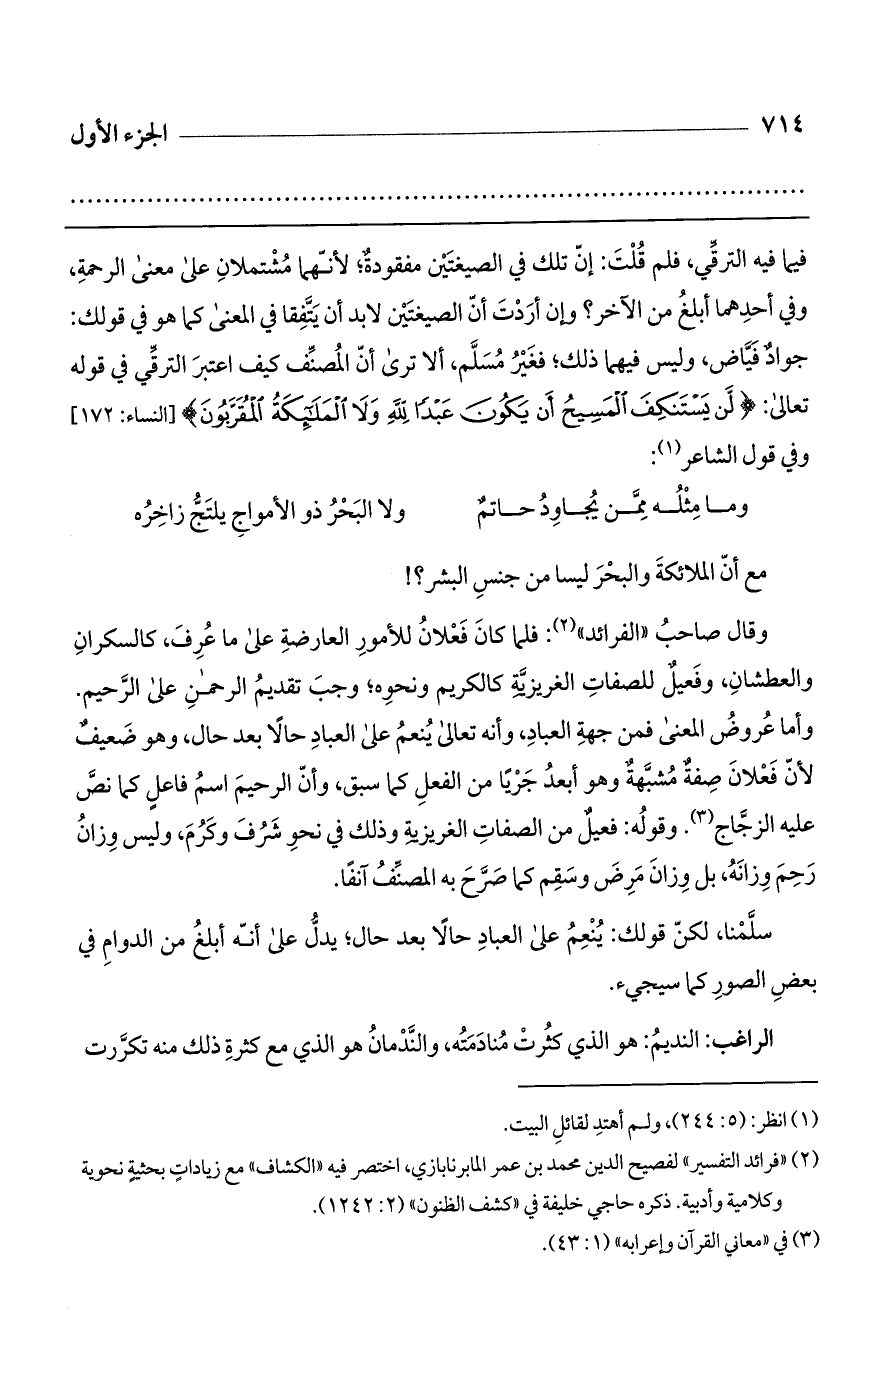 ٧١٤ الجزء الأول
فيما فيه الترقِّي، فلم قُلْتَ: إنّ تلك في الصيغتَيْن مفقودةٌ؛ لأنّهما مُشْتملانِ على معنىٰ الرحمةِ،
وفي أحدِهما أبلغُ من الآخر؟ وإن أرَدْتَ أنّ الصيغتَيْن لابد أن يَتَّفِقا في المعنىٰ كما هو في قولك:
جوادٌ فَيَّاض، وليس فيهما ذلك؛ فغَيْرُ مُسَلَّم، ألا ترىٰ أنّ المُصنِّف كيف اعتبرَ الترقِّي في قوله
تعالىٰ: ﴿لَّن يَسْتَنكِفَ ٱلْمَسِيحُ أَن يَكُونَ عَبْدًا لِّلَّهِ وَلَا ٱلْمَلَٰٓئِكَةُ ٱلْمُقَرَّبُونَ﴾ [النساء: ١٧٢]
وفي قول الشاعر(١):
ومـا مِثْلُـه مِمَّـن يُجـاوِدُ حـاتمٌ ولا البَحْرُ ذو الأمواجِ يلتَجُّ زاخِرُه
مع أنّ الملائكةَ والبحْرَ ليسا من جنسِ البشر؟!
وقال صاحبُ «الفرائد»(٢): فلما كانَ فَعْلانُ للأمورِ العارضةِ علىٰ ما عُرِفَ، كالسكرانِ
والعطشانِ، وفَعيلٌ للصفاتِ الغريزيَّةِ كالكريم ونحوِه؛ وجبَ تقديمُ الرحمٰنِ علىٰ الرَّحيم.
وأما عُروضُ المعنىٰ فمن جهةِ العبادِ، وأنه تعالىٰ يُنعمُ علىٰ العبادِ حالًا بعد حال، وهو ضَعيفٌ
لأنّ فَعْلانَ صِفةٌ مُشبَّهةٌ وهو أبعدُ جَرْيًا من الفعلِ كما سبق، وأنّ الرحيمَ اسمُ فاعلٍ كما نصَّ
عليه الزجَّاج(٣). وقولُه: فعيلٌ من الصفاتِ الغريزيةِ وذلك في نحوِ شَرُفَ وكَرُمَ، وليس وِزانُ
رَحِمَ وِزانَهُ، بل وِزانَ مَرِضَ وسَقِم كما صَرَّحَ به المصنِّفُ آنفًا.
سلَّمْنا، لكنّ قولك: يُنْعِمُ علىٰ العبادِ حالًا بعد حال؛ يدلُّ علىٰ أنـّه أبلغُ من الدوامِ في
بعضِ الصورِ كما سيجيء.
الراغب: النديمُ: هو الذي كثُرتْ مُنادَمَتُه، والنَّدْمانُ هو الذي مع كثرةِ ذلك منه تكرَّرت
(١) انظر: (٥: ٢٤٤)، ولـم أهتدِ لقائلِ البيت.
(٢) «فرائد التفسير» لفصيح الدين محمد بن عمر المابرنابازي، اختصر فيه «الكشاف» مع زياداتٍ بحثيةٍ نحوية
وكلامية وأدبية. ذكره حاجي خليفة في «كشف الظنون» (٢: ١٢٤٢).
(٣) في «معاني القرآن وإعرابه» (١: ٤٣).